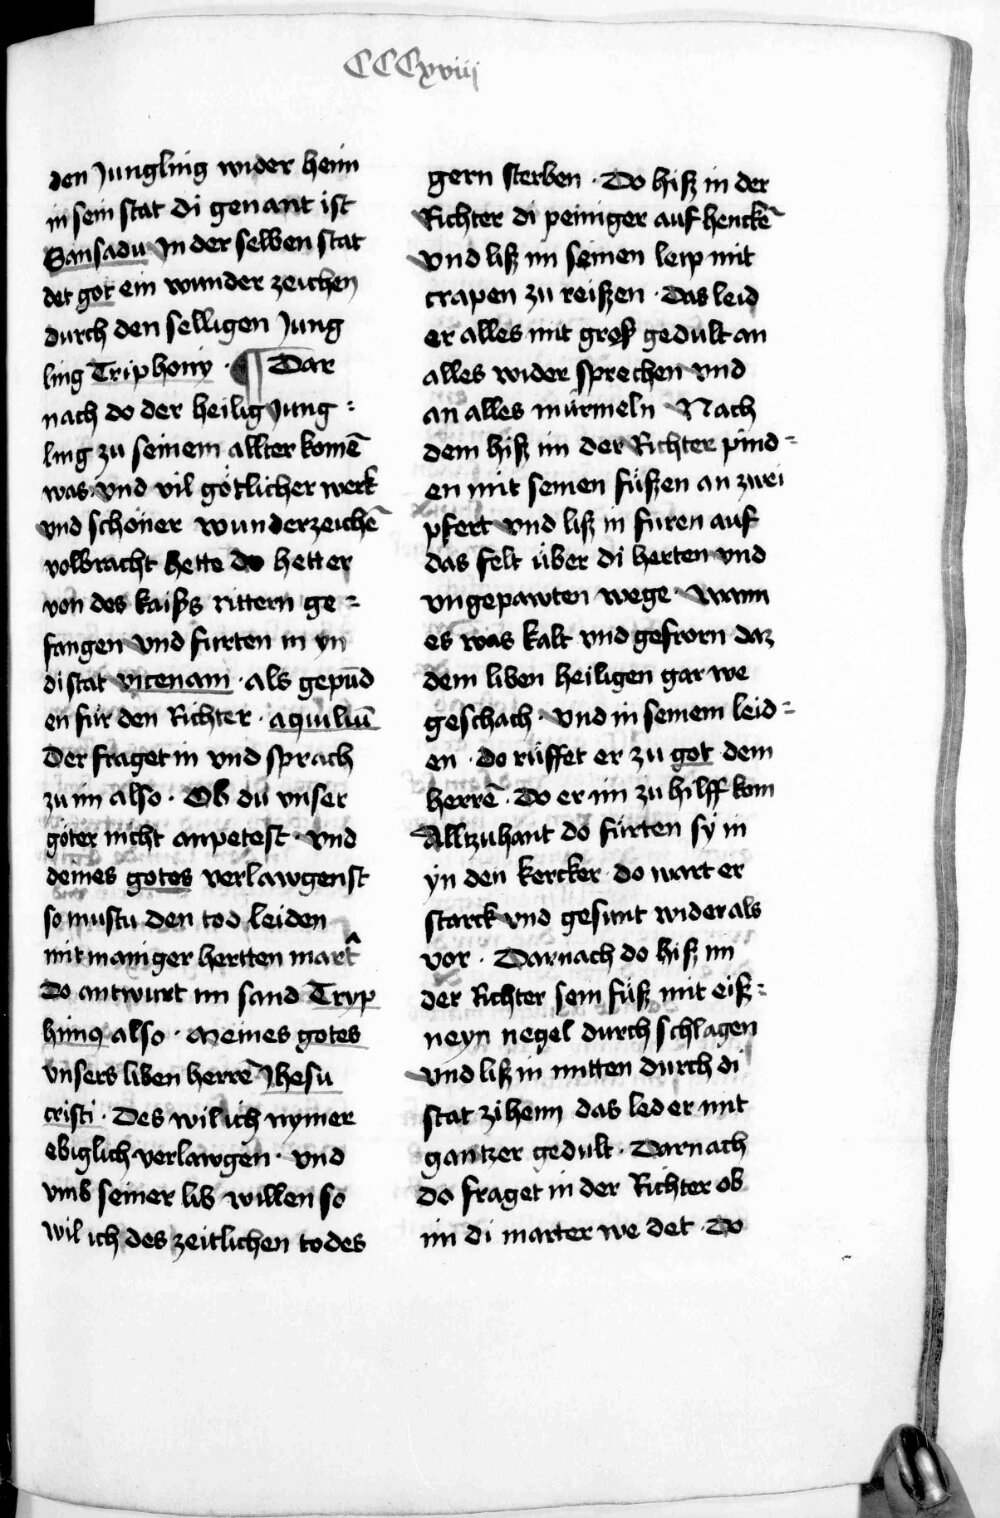 CCCxviij
den Jungling wider heim
in sein stat di genant ist
Sansadu In der selben stat
det got ein wunder zeichen
durch den selligen Jung
ling Triphony · ¶ Dar
nach do der heilig Jung =
ling zu seinem allter komē
was vnd vil götlicher werk
vnd schöner wunderzeichē
volbracht hette do hetter
von des kaiſs rittern ge =
fangen vnd furten in yn
di stat vicenam · als gepūd
en für den Richter · aquiliū
Der fraget in vnd sprach
zu im also · Ob du vnser
göter nicht anpetest · vnd
deines gotes verlawgenst
so mustu den tod leiden
mit maniger hertten mart̂
Do antwurt im sand Tryp
himꝯ also · Meines gotes
vnsers liben herrē Jhesu
cristi · Des wil ich nymer
ebiglich verlawgen · vnd
vmb seiner lib willen so
wil ich des zeitlichen todes
gern sterben · Do hiß in der
Richter di peiniger auf henckē
vnd liß im seinen leip mit
crapen zu reißen · Das leid
er alles mit groß gedult an
alles wider sprechen vnd
an alles murmeln Nach
dem hiß im der Richter pind =
en mit seinen füßen an zwei
pfert vnd liß in furen auf
das felt über di herten vnd
vngepawten wege · Wann
es was kalt vnd gefrorn daz
dem liben heiligen gar we
geschach · vnd in seinem leid =
en · do rüffet er zu got dem
herrē · Do er im zu hilff kom
Alltzuhant do fürten sÿ in
yn den kercker · do wart er
starck vnd gesunt wider als
vor · Darnach do hiß im
der Richter sein füß mit eiß =
neyn negel durch schlagen
vnd liß in mitten durch di
stat zihenn das led er mit
gantzer gedult · Darnach
do fraget in der Richter ob
im di marter we det · Do